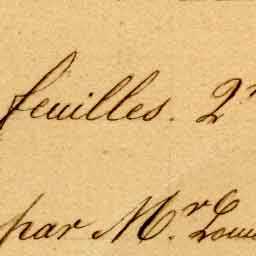 feuilles. 2
par Mr. Loui